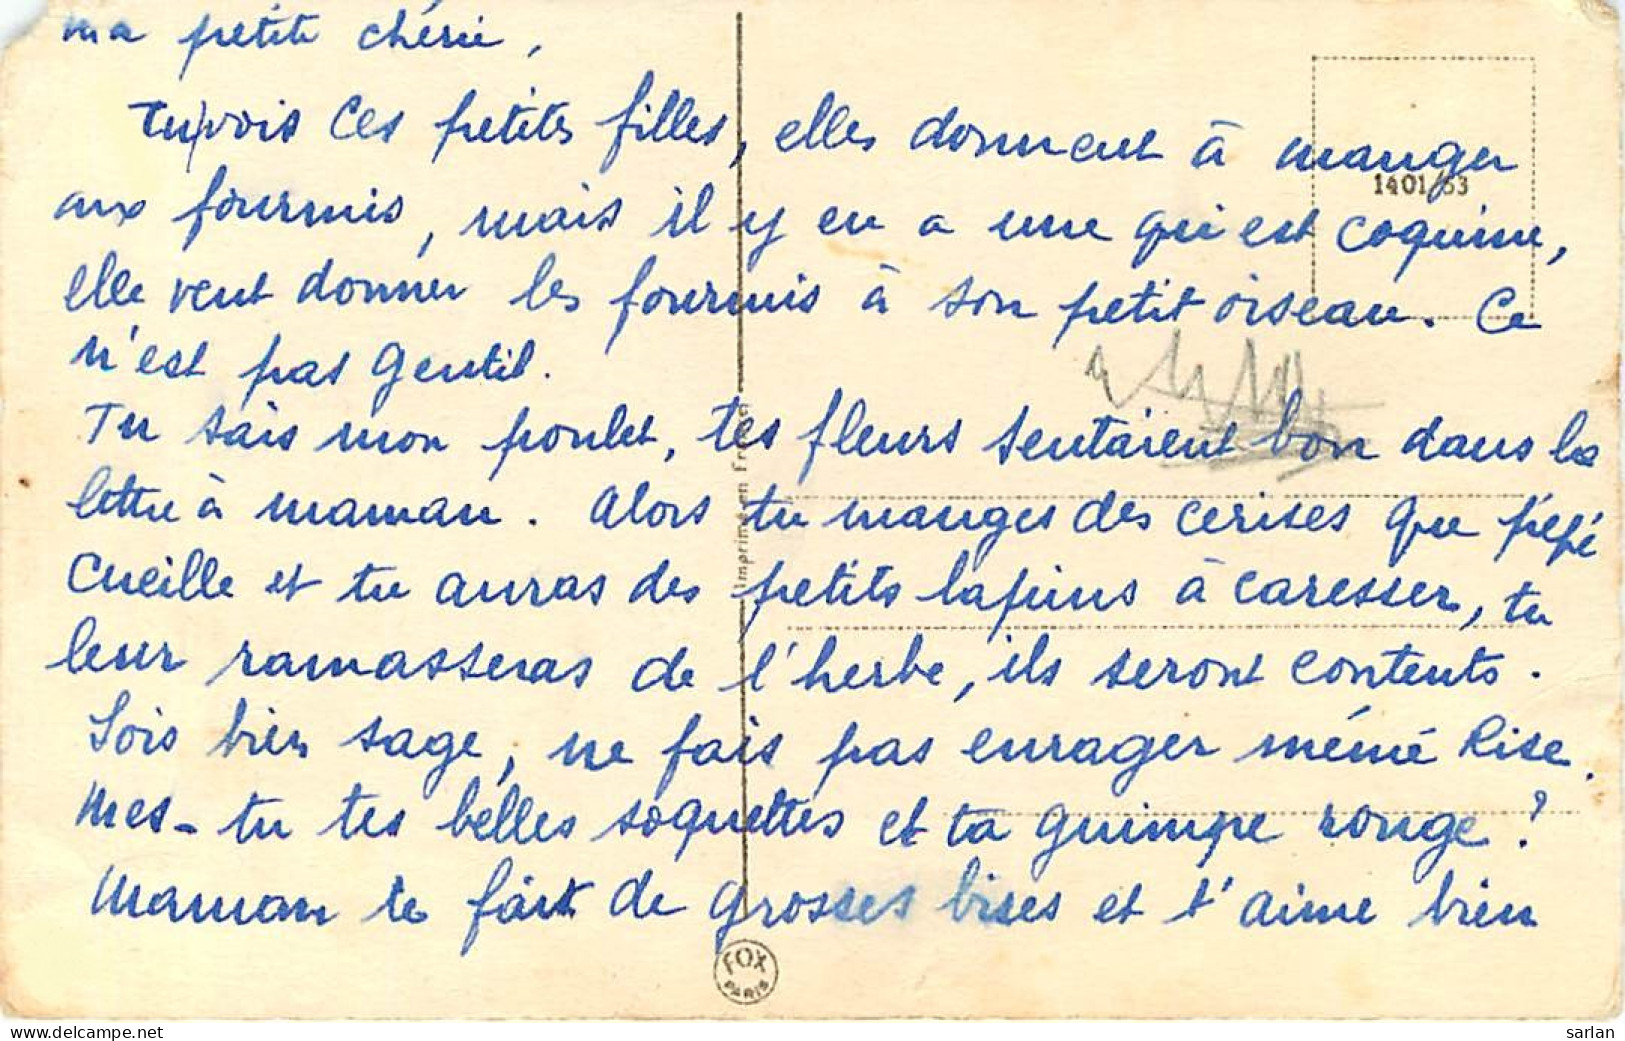 ma petite chérie,
Tu vois ces petites filles, elles donnent à manger
1401/53
aux fourmis, mais il y en a une qui est coquine,
elle veut donner les fourmis à son petit oiseau. Ce
n'est pas gentil.
Tu sais mon poulet, tes fleurs sentaient bon dans la
lettre à maman. Alors tu manges des cerises que pépé
cueille et tu auras des petits lapins à caresser, tu
leur ramasseras de l'herbe, ils seront contents.
Sois bien sage, ne fais pas enrager mémé Rise.
Mes-tu tes belles soquettes et ta guimpe rouge?
Maman te fait de grosses bises et t'aime bien
Imprimé en France
FOX
PARIS
www.delcampe.net
sarlan